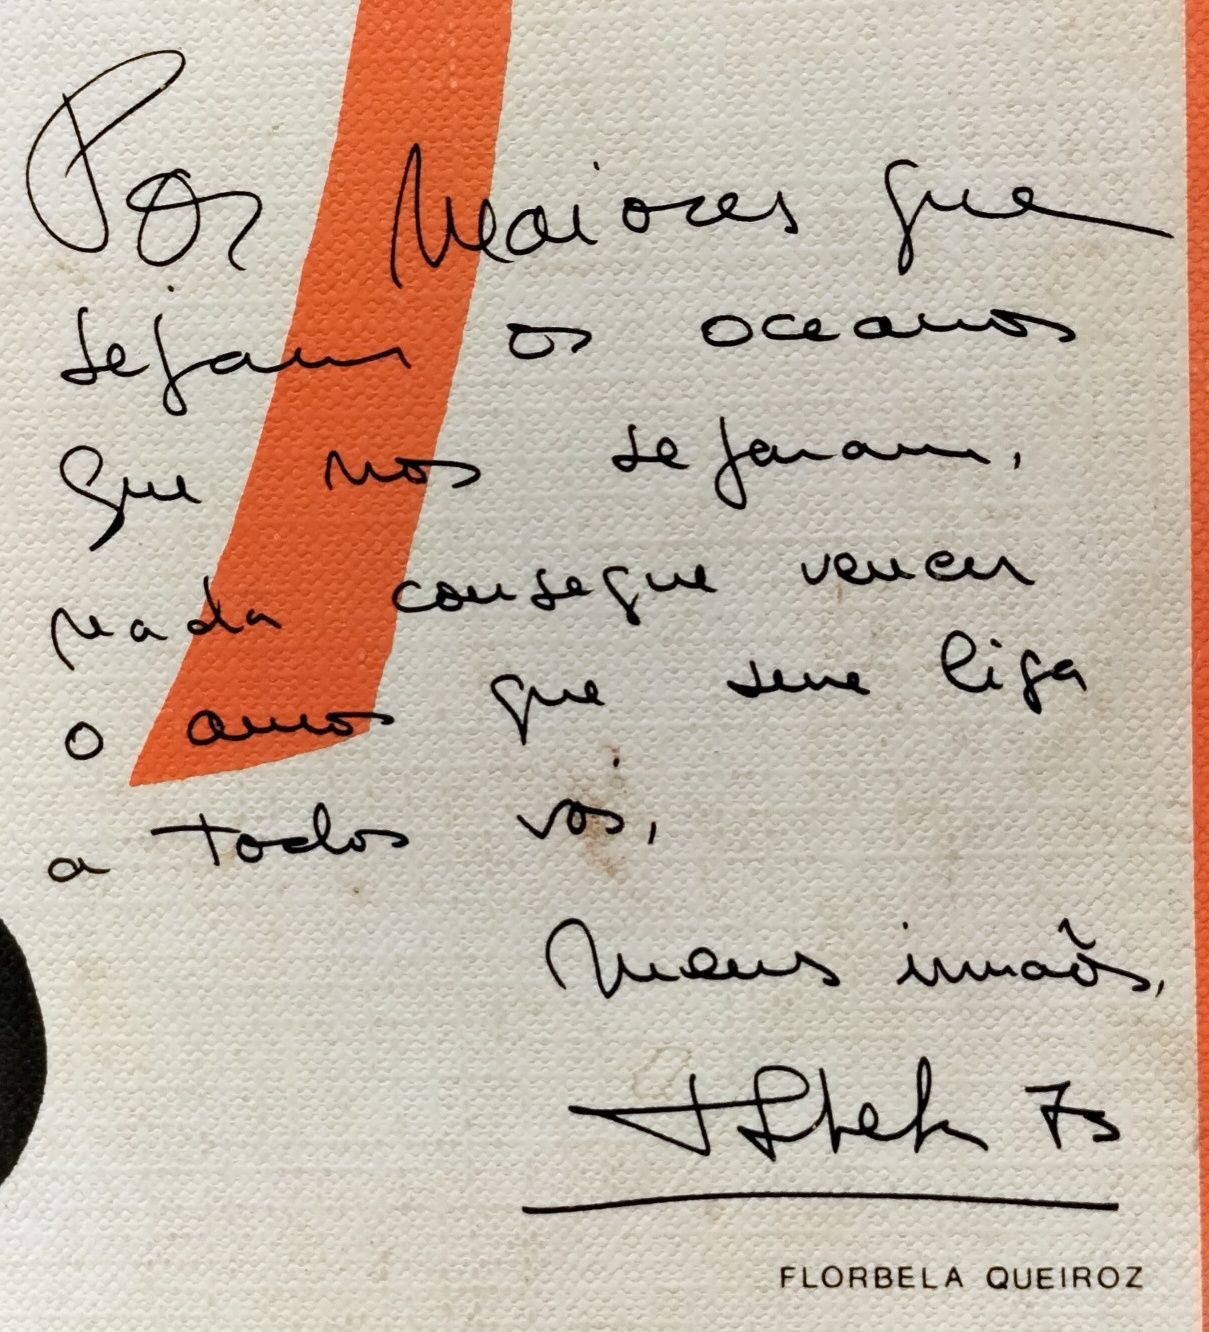 Por Maiores que
sejam os oceanos
que nos separam,
nada consegue vencer
o amor que me liga
a todos vós,
Meus irmãos,
75
FLORBELA QUEIROZ